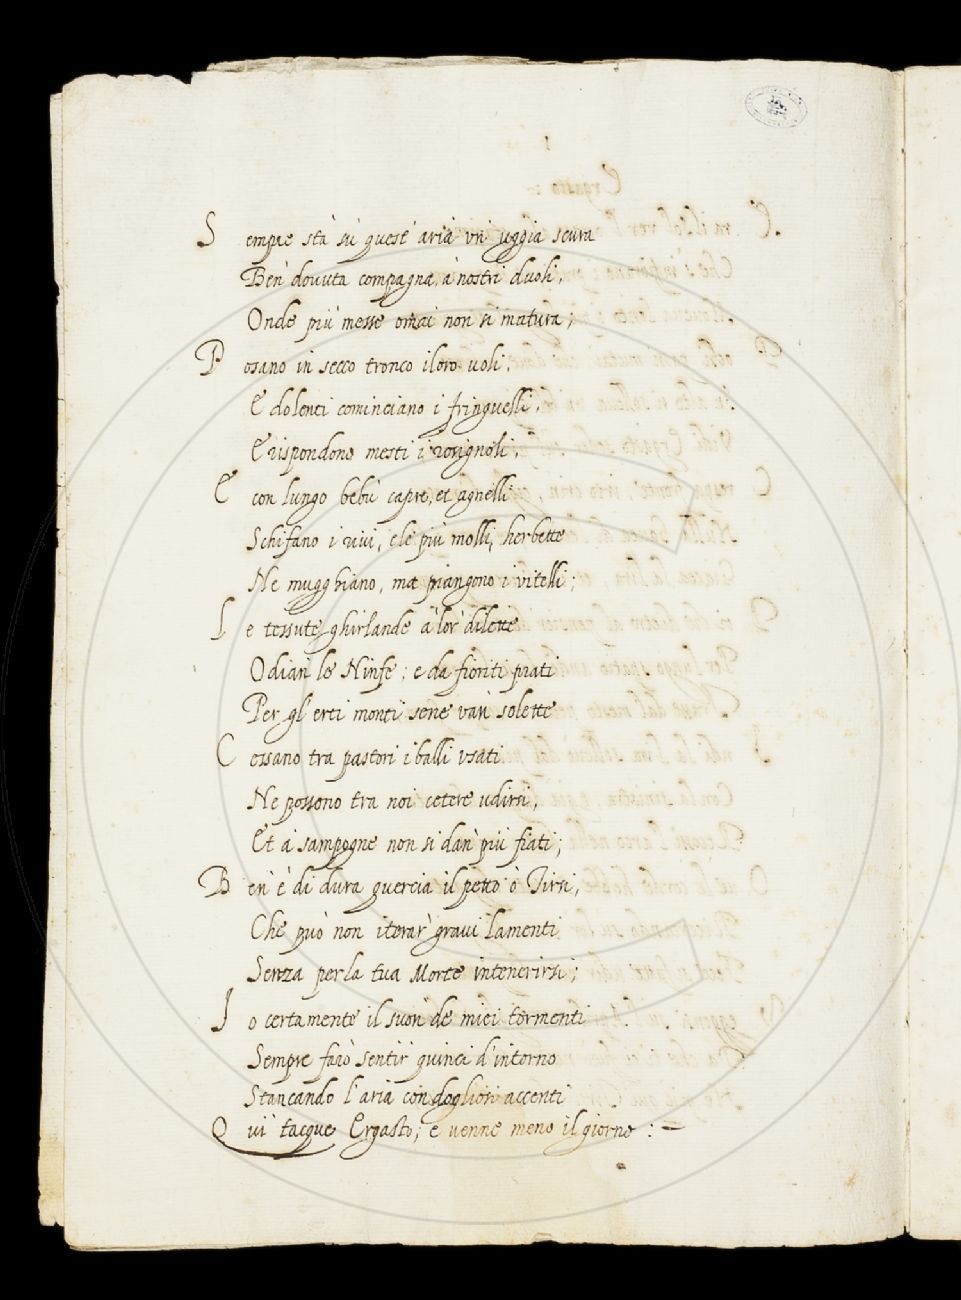 Sempre stà sù quest'aria un'uggia scura
Ben'dovuta compagna, a'nostri duoli,
Onde più messe omai non si matura;
Posano in secco tronco i loro voli,
E dolenti cominciano i fringuelli,
E rispondono mesti i rosignoli,
E con lungo bebù capre, et agnelli
Schifano i rivi, e le più molli herbette
Ne mugghiano, ma piangono i vitelli;
Le tessute ghirlande à lor'dilette
Odian'le Ninfe; e da fioriti prati
Per gl'erti monti sene van'solette
Cessano tra pastori i balli usati
Ne possono tra noi cetere udirsi,
Et a sampogne non si dan'più fiati;
Ben'è di dura quercia il petto ò Tirsi,
Che può non iterar'gravi lamenti
Senza per la tua Morte intenerirsi;
Io certamente il suon'de miei tormenti
Sempre farò sentir quinci d'intorno
Stancando l'aria con dogliosi accenti
Quì tacque Ergasto; e venne meno il giorno :~